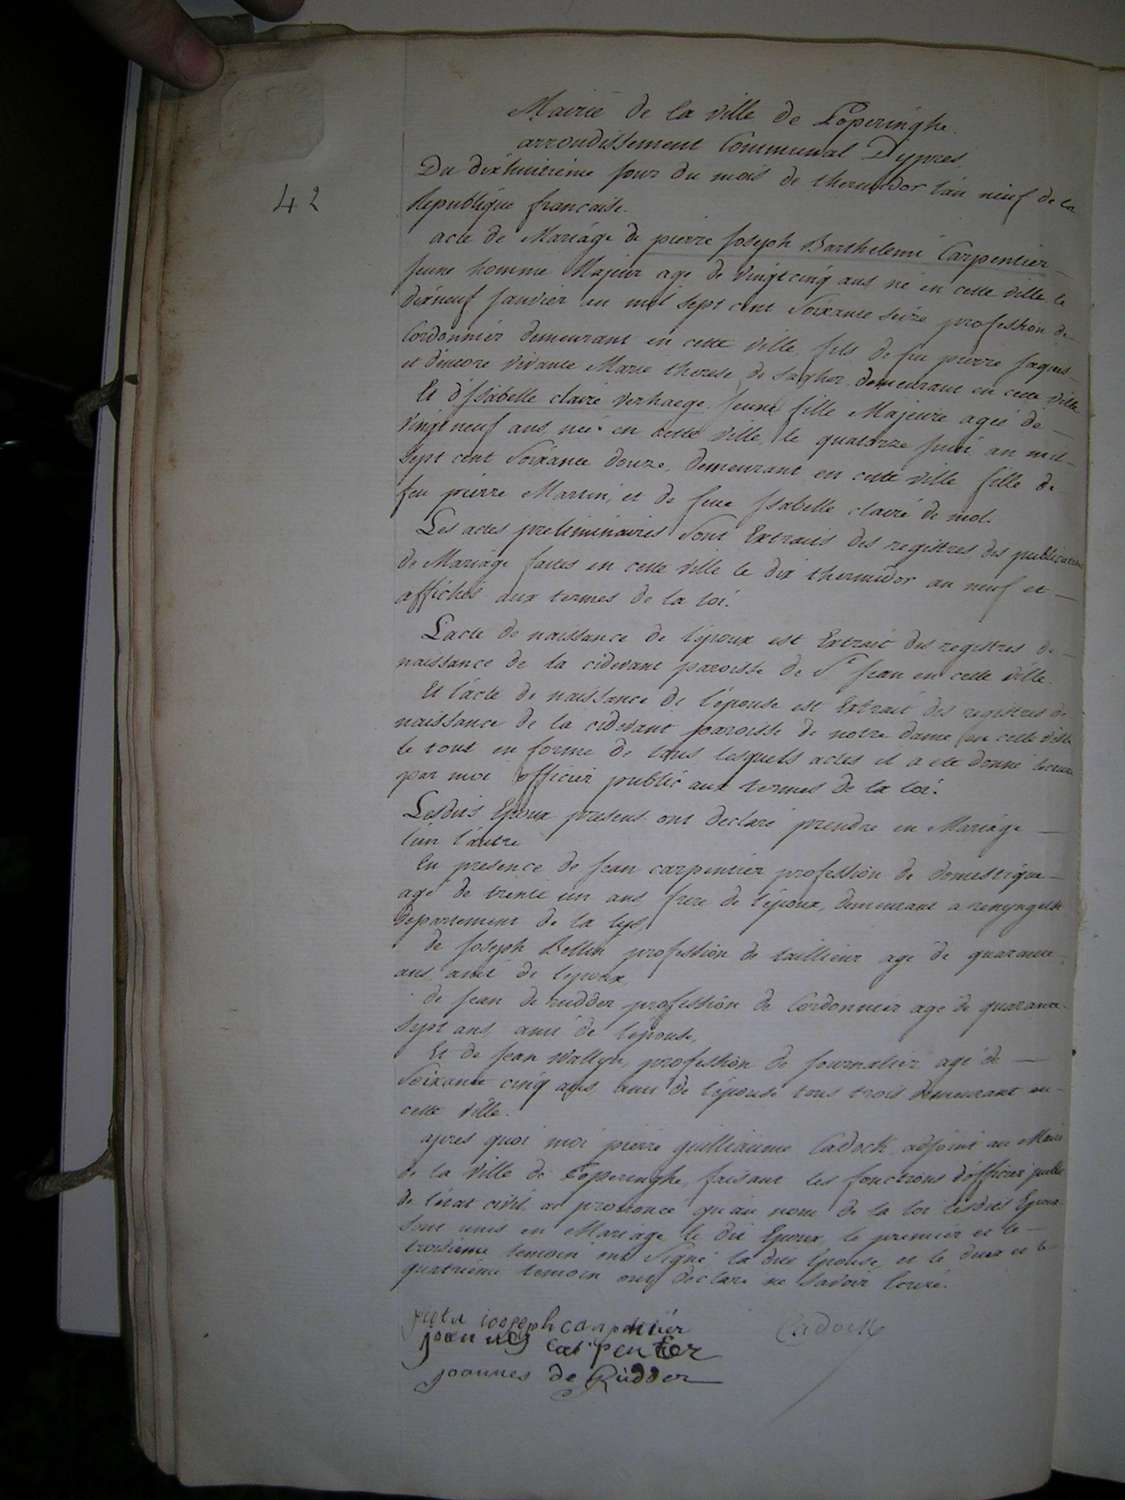 Mairie de la ville de Poperinghe
arrondissement Communal D'ypres
42
Du dixhuitieme jour du mois de thermidor l'an neuf de la
Republique francaise.
acte de Mariage de pierre Joseph Barthelemi Carpentier
jeune homme Majeur agé de vingt cinq ans né en cette ville le
dixneuf Janvier an mil sept cent soixante seize profession de
Cordonnier demeurant en cette ville, fils de feu pierre Jaques
et d'encore vivante Marie therese de Sagher demeurant en cette ville
Et d'Isabelle claire verhaege jeune fille Majeure agée de
vingt neuf ans, née en cette ville, le quatorze juin an mil
sept cent soixante douze, demeurant en cette ville fille de
feu pierre Martin, et de feue Isabelle claire de mol.
Les actes preliminaires sont Extraits des registres des publications
de Mariage faites en cette ville le dix thermidor an neuf et
affichés aux termes de la loi.
L'acte de naissance de l'époux est Extrait des registres de
naissance de la cidevant paroisse de St jean en cette ville.
Et l'acte de naissance de l'épouse est Extrait des registres de
naissance de la cidevant paroisse de notre dame en cette ville
le tout en forme de tous lesquels actes il a été donné lecture
par moi officier public aux termes de la loi.
Lesdits Epoux presens ont declaré prendre en Mariage
l'un l'autre
En presence de jean carpentier profession de domestique
agé de trente un ans frere de l'époux, demeurant a renyngelst
departement de la lys,
de joseph Bellin profession de taillieur agé de quarante
ans, ami de l'epoux,
de jean de rudder profession de Cordonnier agé de quarante
sept ans, ami de l'épouse,
Et de jean wallyn, profession de journalier agé de
soixante cinq ans, ami de l'épouse tous trois demeurant en
cette ville.
apres quoi moi pierre guilliaume Cadock adjoint au Maire
de la ville de Poperinghe, faisant les fonctions d'officier public
de l'état civil ai prononcé qu'au nom de la loi lesdits Epoux
sont unis en Mariage le dit Epoux, le premier et le
troisieme temoin ont signé la dite Epouse, et le deux et le
quatrieme temoin ont declaré ne savoir
pieter ioseph carpentier
Cadock
joannes carpentier
joannes de Rudder